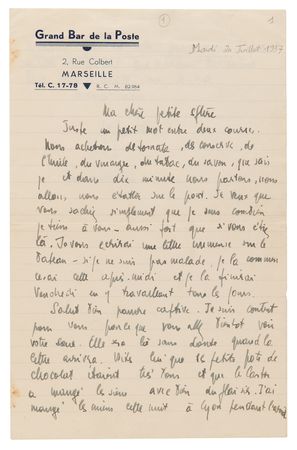 1
1
Grand Bar de la Poste
2, Rue Colbert
MARSEILLE
Tél. C. 17-78 R. C. M. 82.984
Mardi 20 Juillet 1937
Ma chère petite
Juste un petit mot entre deux courses.
Nous achetons des tomates, des conserves, de
l'huile, du vinaigre, du tabac, du savon, que sais
je et dans dix minutes nous partons, nous
allons, nous installer sur le pont. Je veux que
vous sachiez simplement que je sens combien
je tiens à vous - aussi fort que si vous étiez
là. Je vous écrirai une lettre immense sur le
bateau - si je ne suis pas malade. Je la commen
cerai cette après-midi et je la finirai
vendredi en y travaillant tous les jours.
Salut pauvre captive. Je suis content
pour vous parce que vous allez bientôt voir
votre sœur. Elle sera là sans doute quand la
lettre arrivera. Dites lui que ses petits pots de
chocolat étaient très bons et que le Castor
a mangé les siens avec bien du plaisir. J'ai
mangé les miens cette nuit à Lyon pendant